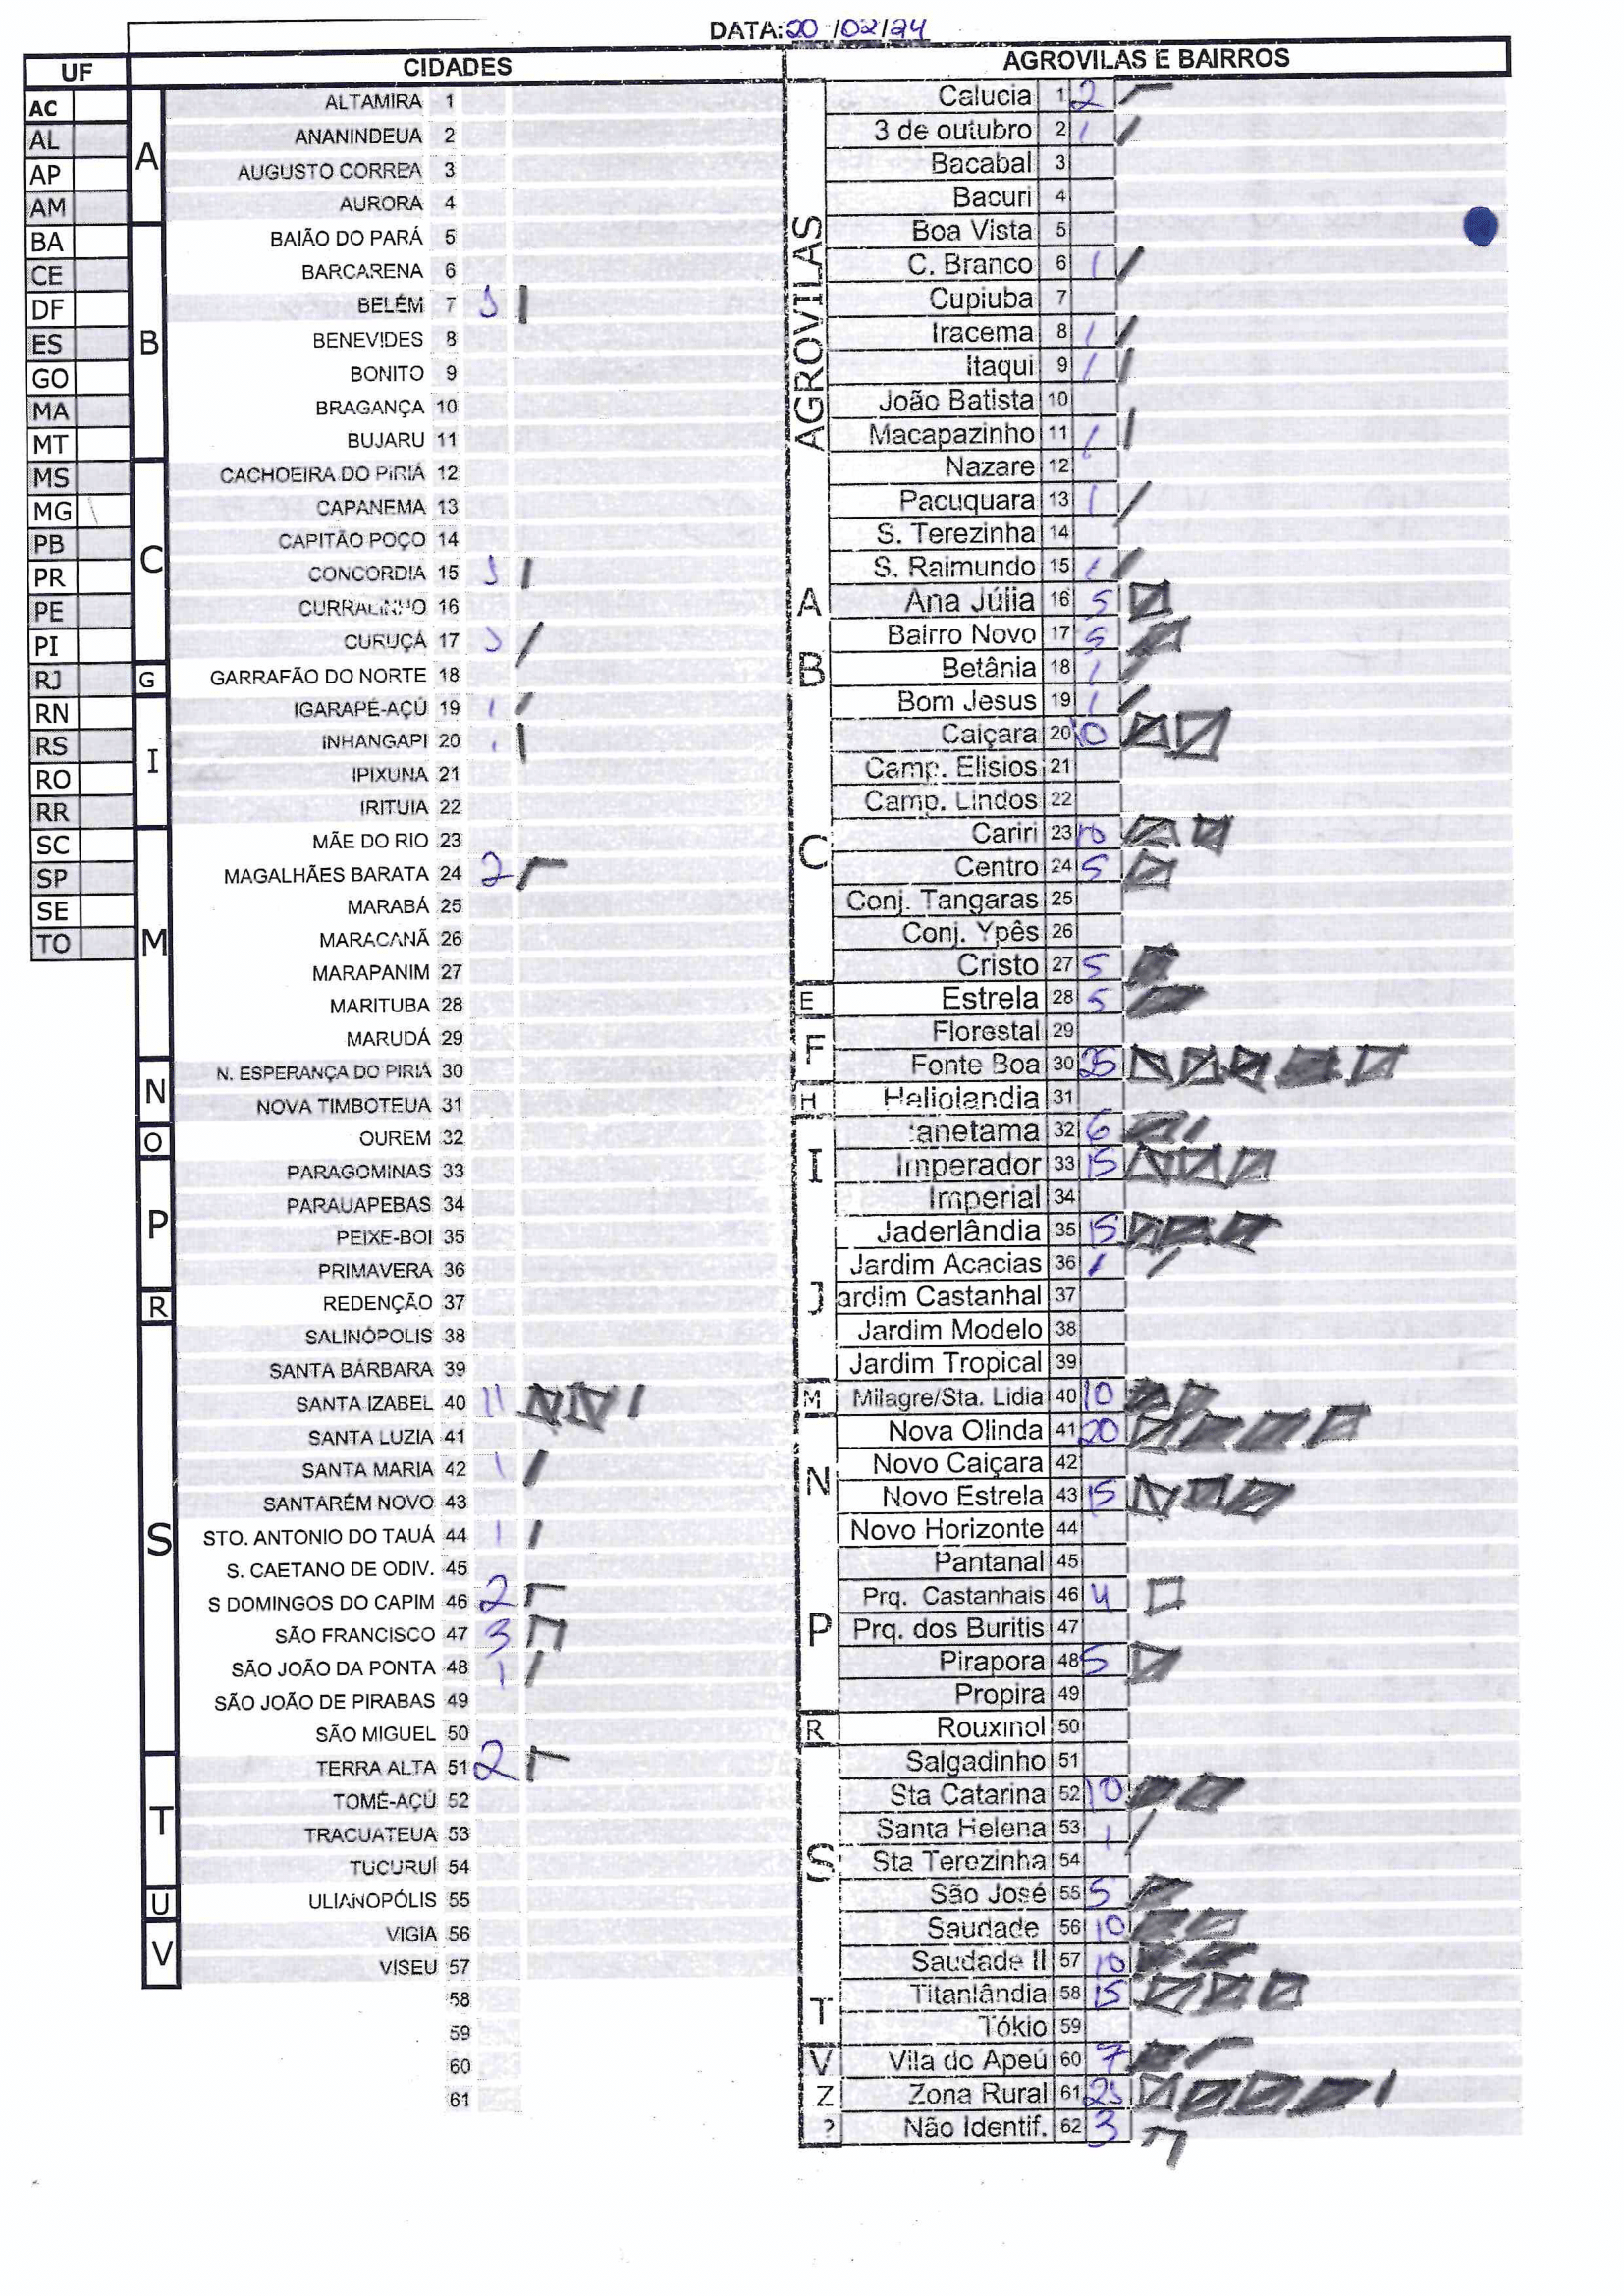 DATA: 20/02/24
UF CIDADES AGROVILAS E BAIRROS
AC
AL
AP
AM
BA
CE
DF
ES
GO
MA
MT
MS
MG
PB
PR
PE
PI
RJ
RN
RS
RO
RR
SC
SP
SE
TO
A
ALTAMIRA 1
ANANINDEUA 2
AUGUSTO CORREA 3
AURORA 4
B
BAIÃO DO PARÁ 5
BARCARENA 6
BELÉM 7 1
BENEVIDES 8
BONITO 9
BRAGANÇA 10
BUJARU 11
C
CACHOEIRA DO PIRIÁ 12
CAPANEMA 13
CAPITÃO POÇO 14
CONCORDIA 15 1
CURRALINHO 16
CURUÇÁ 17 1
G
GARRAFÃO DO NORTE 18
I
IGARAPÉ-AÇÚ 19 1
INHANGAPI 20 1
IPIXUNA 21
IRITUIA 22
M
MÃE DO RIO 23
MAGALHÃES BARATA 24 2
MARABÁ 25
MARACANÃ 26
MARAPANIM 27
MARITUBA 28
MARUDÁ 29
N
N. ESPERANÇA DO PIRIÁ 30
NOVA TIMBOTEUA 31
O
OUREM 32
P
PARAGOMINAS 33
PARAUAPEBAS 34
PEIXE-BOI 35
PRIMAVERA 36
R
REDENÇÃO 37
S
SALINÓPOLIS 38
SANTA BÁRBARA 39
SANTA IZABEL 40 11
SANTA LUZIA 41
SANTA MARIA 42 1
SANTARÉM NOVO 43
STO. ANTONIO DO TAUÁ 44 1
S. CAETANO DE ODIV. 45
S DOMINGOS DO CAPIM 46 2
SÃO FRANCISCO 47 3
SÃO JOÃO DA PONTA 48 1
SÃO JOÃO DE PIRABAS 49
SÃO MIGUEL 50
T
TERRA ALTA 51 2
TOMÉ-AÇÚ 52
TRACUATEUA 53
TUCURUÍ 54
U
ULIANOPÓLIS 55
V
VIGIA 56
VISEU 57
58
59
60
61
AGROVILAS
Calucia 1 2
3 de outubro 2 1
Bacabal 3
Bacuri 4
Boa Vista 5
C. Branco 6 1
Cupiuba 7
Iracema 8 1
Itaqui 9 1
João Batista 10
Macapazinho 11 1
Nazare 12
Pacuquara 13 1
S. Terezinha 14
S. Raimundo 15 1
A
Ana Júlia 16 5
B
Bairro Novo 17 5
Betânia 18 1
Bom Jesus 19 1
C
Caiçara 20 10
Camp. Elisios 21
Camp. Lindos 22
Cariri 23 10
Centro 24 5
Conj. Tangaras 25
Conj. Ypês 26
Cristo 27 5
E
Estrela 28 5
F
Florestal 29
Fonte Boa 30 25
H
Heliolandia 31
I
Ianetama 32 6
Imperador 33 15
Imperial 34
J
Jaderlândia 35 15
Jardim Acacias 36 1
ardim Castanhal 37
Jardim Modelo 38
Jardim Tropical 39
M
Milagre/Sta. Lidia 40 10
N
Nova Olinda 41 20
Novo Caiçara 42
Novo Estrela 43 15
Novo Horizonte 44
P
Pantanal 45
Prq. Castanhais 46 4
Prq. dos Buritis 47
Pirapora 48 5
Propira 49
R
Rouxinol 50
S
Salgadinho 51
Sta Catarina 52 10
Santa Helena 53 1
Sta Terezinha 54
São José 55 5
Saudade 56 10
Saudade II 57 10
T
Titanlândia 58 15
Tókio 59
V
Vila do Apeú 60 7
Z
Zona Rural 61 21
?
Não Identif. 62 3